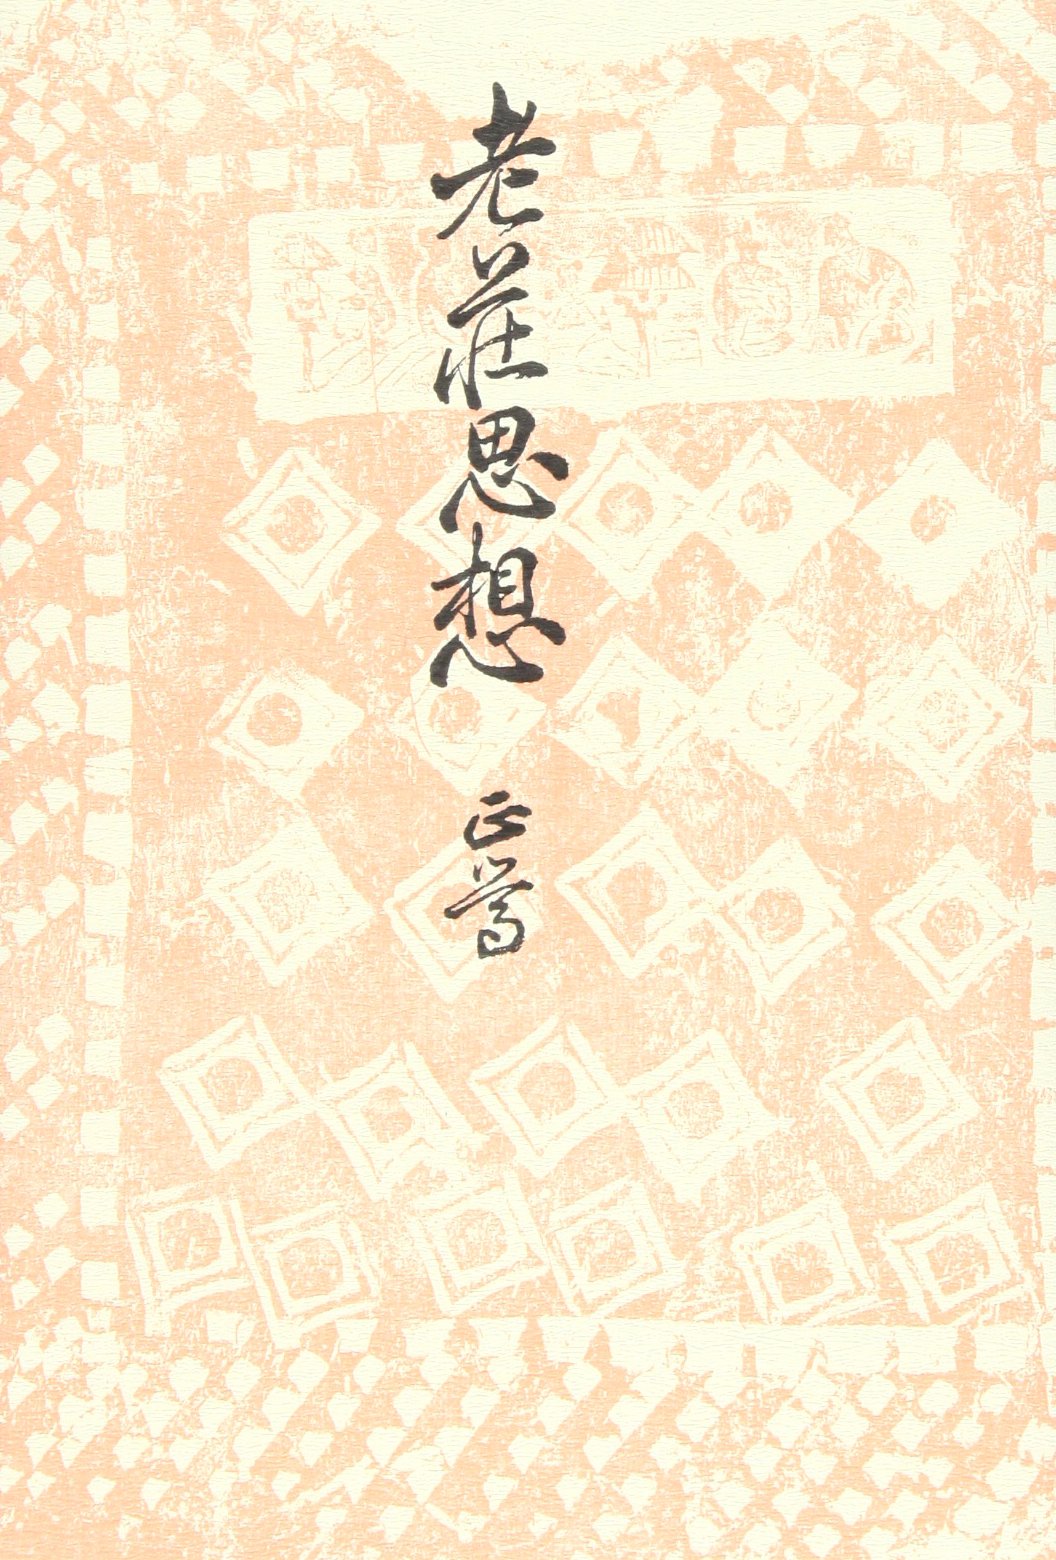 老莊思想
正篤